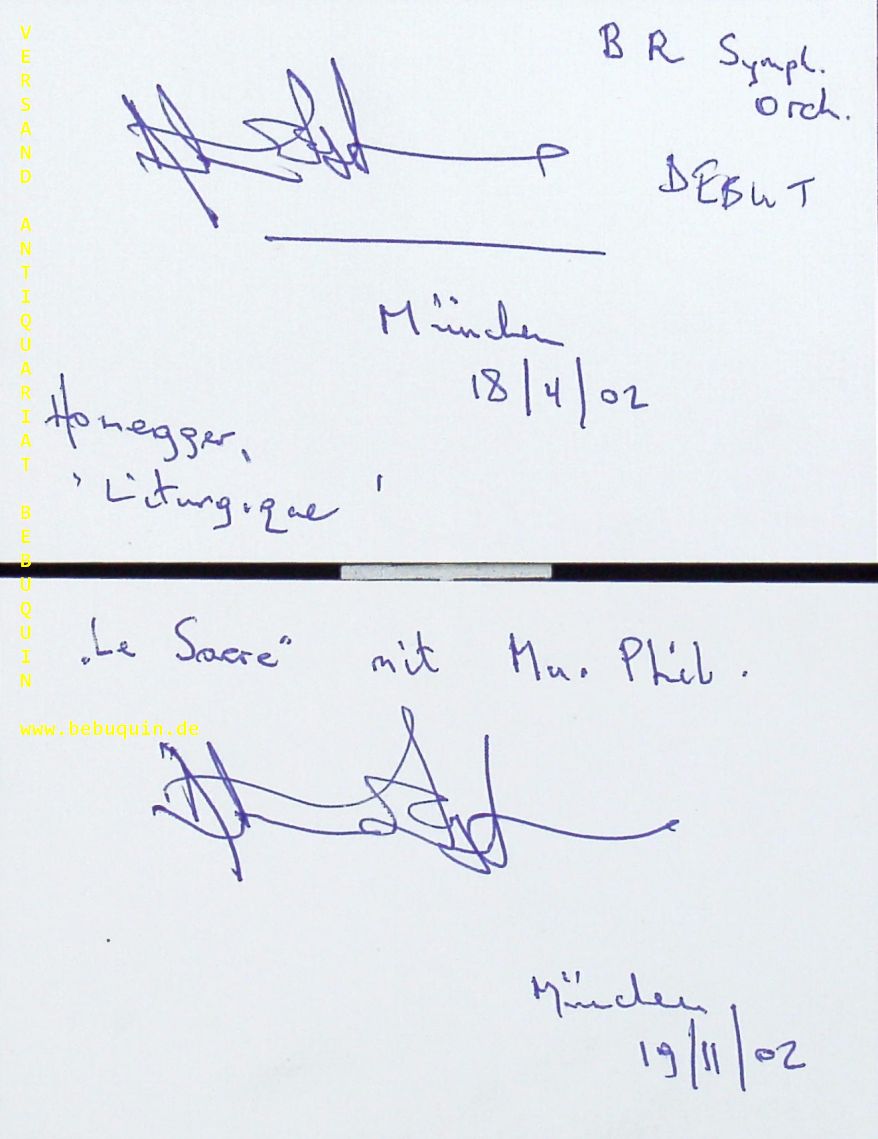 B R Symph.
Orch.
DEBUT
München
18/4/02
Honegger,
"Liturgique"
„Le Sacre“ mit Mü. Phil.
München
19/11/02
VERSAND ANTIQUARIAT BEBUQUIN
www.bebuquin.de